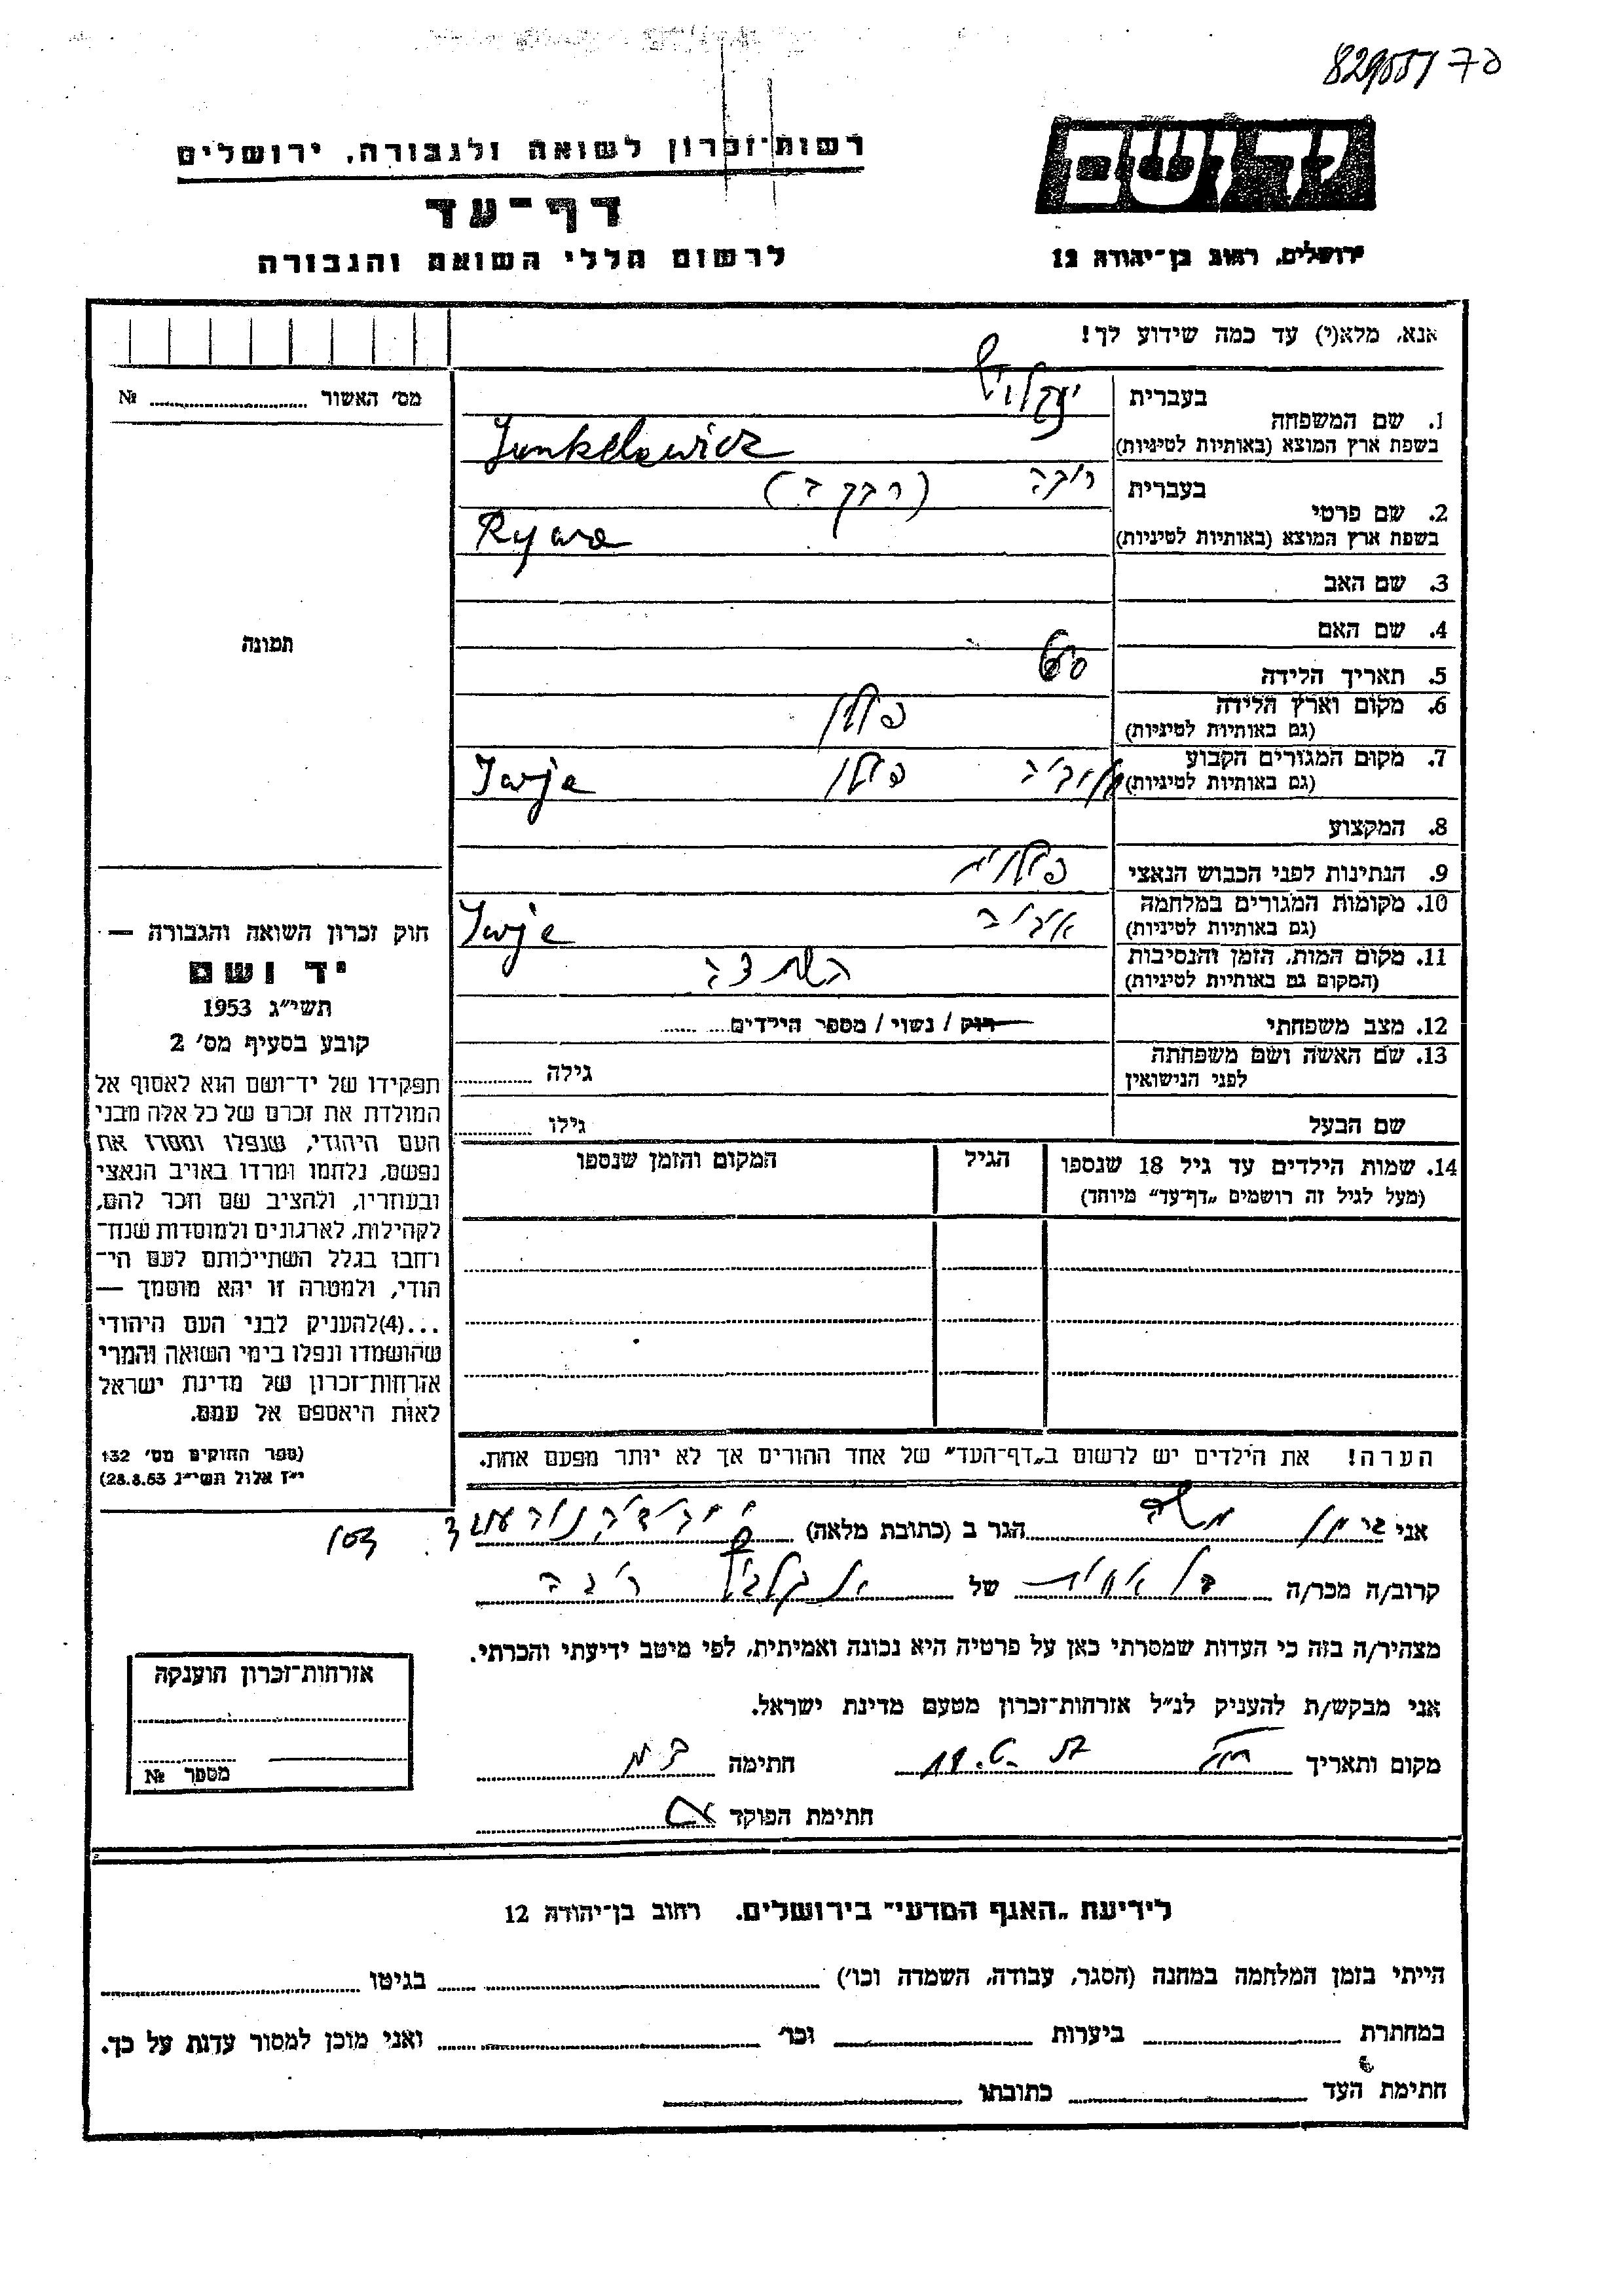 829055/70
יד ושם
רשות־זכרון לשואה ולגבורה, ירושלים
דף־עד
לרשום חללי השואה והגבורה
ירושלים, רחוב בן־יהודה 12
אנא, מלא(י) עד כמה שידוע לך!
בעברית
1. שם המשפחה
בשפת ארץ המוצא (באותיות לטיניות) Junkelewicz
בעברית (רבקה)
2. שם פרטי
בשפת ארץ המוצא (באותיות לטיניות) Rywa
3. שם האב
4. שם האם
5. תאריך הלידה 60
6. מקום וארץ הלידה פולין
(גם באותיות לטיניות)
7. מקום המגורים הקבוע פולין Iwje
(גם באותיות לטיניות)
8. המקצוע
9. הנתינות לפני הכבוש הנאצי פולנית
10. מקומות המגורים במלחמה Iwje
(גם באותיות לטיניות)
11. מקום המות, הזמן והנסיבות
(המקום גם באותיות לטיניות)
12. מצב משפחתי רוק / נשוי / מספר הילדים
13. שם האשה ושם משפחתה
לפני הנישואין גילה
שם הבעל גילו
14. שמות הילדים עד גיל 18 שנספו הגיל המקום והזמן שנספו
(מעל לגיל זה רושמים „דף־עד” מיוחד)
הערה! את הילדים יש לרשום ב„דף־העד” של אחד ההורים אך לא יותר מפעם אחת.
מס׳ האשור №
תמונה
חוק זכרון השואה והגבורה —
יד ושם
תשי״ג 1953
קובע בסעיף מס׳ 2
תפקידו של יד־ושם הוא לאסוף אל
המולדת את זכרם של כל אלה מבני
העם היהודי, שנפלו ומסרו את
נפשם, נלחמו ומרדו באויב הנאצי
ובעוזריו, ולהציב שם וזכר להם,
לקהילות, לארגונים ולמוסדות שנח־
רבו בגלל השתייכותם לעם הי־
הודי, ולמטרה זו יהא מוסמך —
...(4)להעניק לבני העם היהודי
שהושמדו ונפלו בימי השואה והמרי
אזרחות־זכרון של מדינת ישראל
לאות היאספם אל עמם.
(ספר החוקים מס׳ 132
י״ז אלול תשי״ג 28.8.53)
אני הגר ב (כתובת מלאה)
קרוב/ה מכר/ה של
מצהיר/ה בזה כי העדות שמסרתי כאן על פרטיה היא נכונה ואמיתית, לפי מיטב ידיעתי והכרתי.
אני מבקש/ת להעניק לנ״ל אזרחות־זכרון מטעם מדינת ישראל.
מקום ותאריך חתימה
חתימת הפוקד
אזרחות־זכרון הוענקה
מספר №
לידיעת „האגף המדעי” בירושלים. רחוב בן־יהודה 12
הייתי בזמן המלחמה במחנה (הסגר, עבודה, השמדה וכו׳) בגיטו
במחתרת ביערות וכו׳ ואני מוכן למסור עדות על כך.
חתימת העד כתובתו